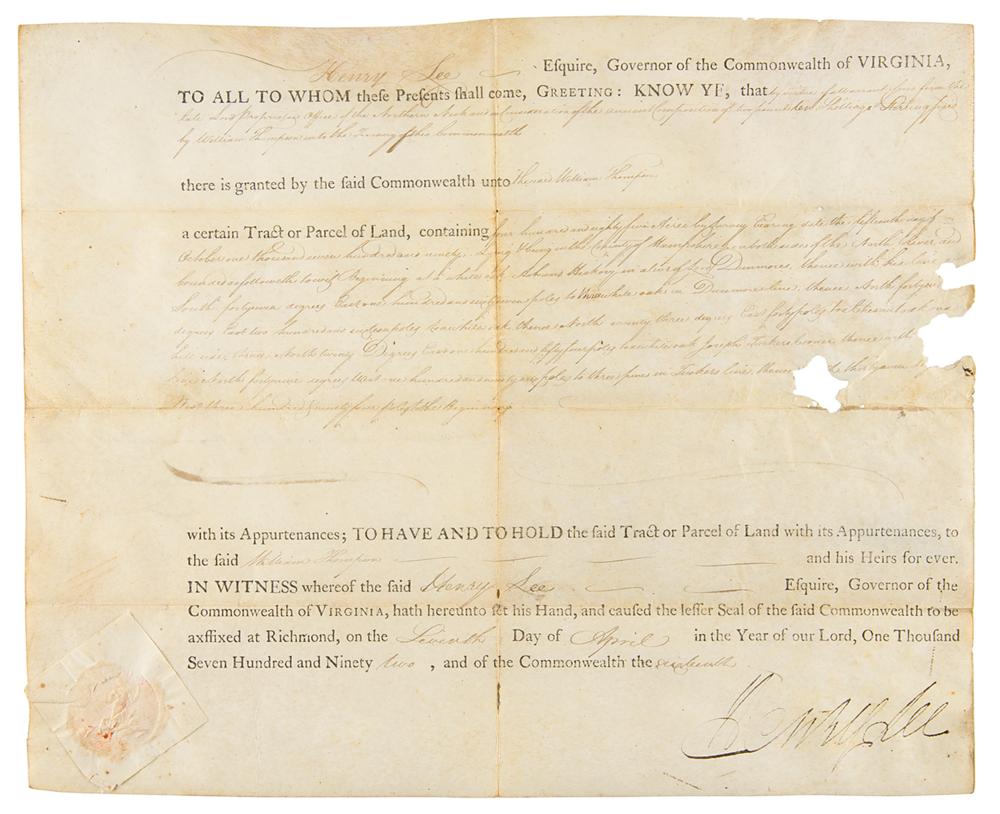 Henry Lee Esquire, Governor of the Commonwealth of VIRGINIA,
TO ALL TO WHOM these Presents shall come, GREETING: KNOW YE, that by virtue of a warrant from the
late Lord Proprietors Office of the Northern Neck and in consideration of the ancient Composition of two pounds ten Shillings Sterling paid
by William Thompson into the Treasury of this Commonwealth
there is granted by the said Commonwealth unto the said William Thompson
a certain Tract or Parcel of Land, containing four hundred and eighty five Acres by Survey bearing date the fifteenth day of
October one thousand seven hundred and ninety. Lying & being in the County of Hampshire on both sides of the North River and
bounded as followeth to wit Beginning at a white oak & Hickory in a line of Lord Dunmores, thence with his line
South forty seven degrees East one hundred and poles to three white oaks in Dunmores line, thence North forty
degrees East two hundred and sixteen poles to a white oak thence North twenty three degrees East forty poles to
hill side, thence North twenty Degrees East one hundred and fifty four poles to a white oak Joseph Tuckers corner, thence with
line North forty degrees West one hundred and ninety six poles to three pines in Tuckers line, thence thirty seven
West three hundred & seventy four poles to the Beginning
with its Appurtenances; TO HAVE AND TO HOLD the said Tract or Parcel of Land with its Appurtenances, to
the said William Thompson and his Heirs for ever.
IN WITNESS whereof the said Henry Lee Esquire, Governor of the
Commonwealth of VIRGINIA, hath hereunto set his Hand, and caused the lesser Seal of the said Commonwealth to be
axffixed at Richmond, on the Seventh Day of April in the Year of our Lord, One Thousand
Seven Hundred and Ninety two , and of the Commonwealth the sixteenth
Henry Lee